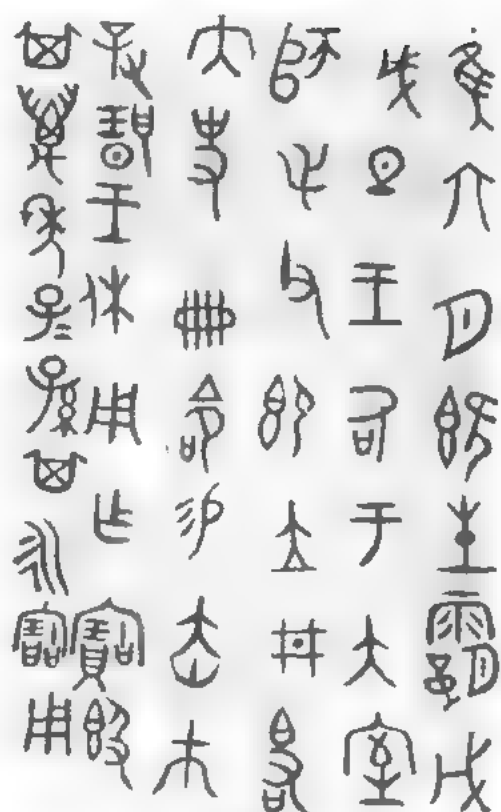 隹六月既生霸戊
戌旦王各于大室
師毛父即立井白右
大史冊命易赤巿
對揚王休用乍寶𣪘
其萬年子=孫其永寶用